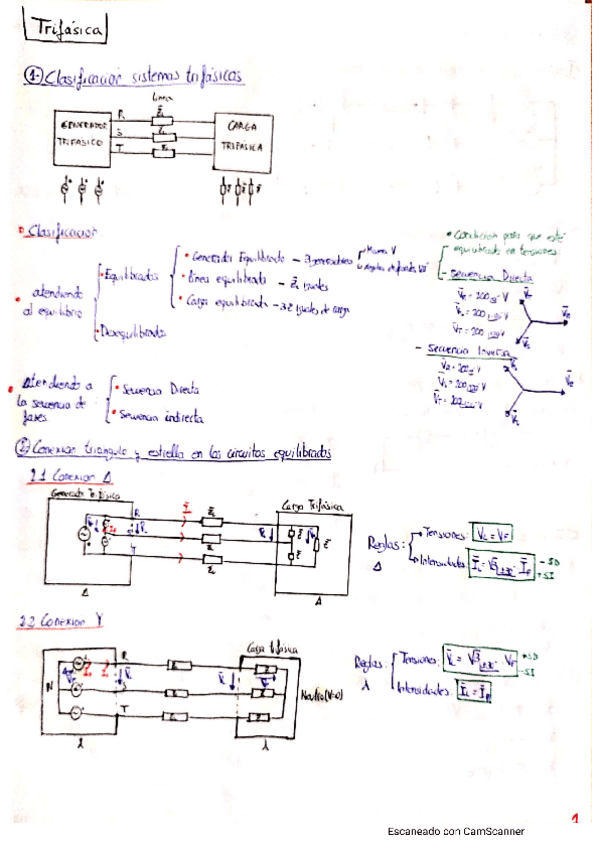 Trifásica
1- Clasificación sistemas trifásicos
Línea
GENERADOR
TRIFASICO
R
S
T
CARGA
TRIFASICA
Clasificación
atendiendo
al equilibrio
Equilibrados
Generador Equilibrado - 3 generadores
Misma V
Línea equilibrada - Z̄L iguales
Carga equilibrada - 3 Z̄ iguales de carga
Desequilibrados
Condición para que esté
equilibrado en tensiones:
- Secuencia Directa
- Secuencia Inversa
Atendiendo a
la secuencia de
fases
Secuencia Directa
Secuencia indirecta
2- Conexión triángulo y estrella en los circuitos equilibrados
2.1 Conexión Δ
Generador Trifásico
Carga Trifásica
R
T
Δ
Δ
Reglas:
Δ
Tensiones: VL = VF
Intensidades: ĪL = √3 · ĪF
- SD
+ SI
2.2 Conexión Y
Carga trifásica
N
R
S
T
Neutro (V=0)
Reglas:
Tensiones: V̄L = √3 · VF
+ SD
- SI
Intensidades: ĪL = ĪF
1
Escaneado con CamScanner